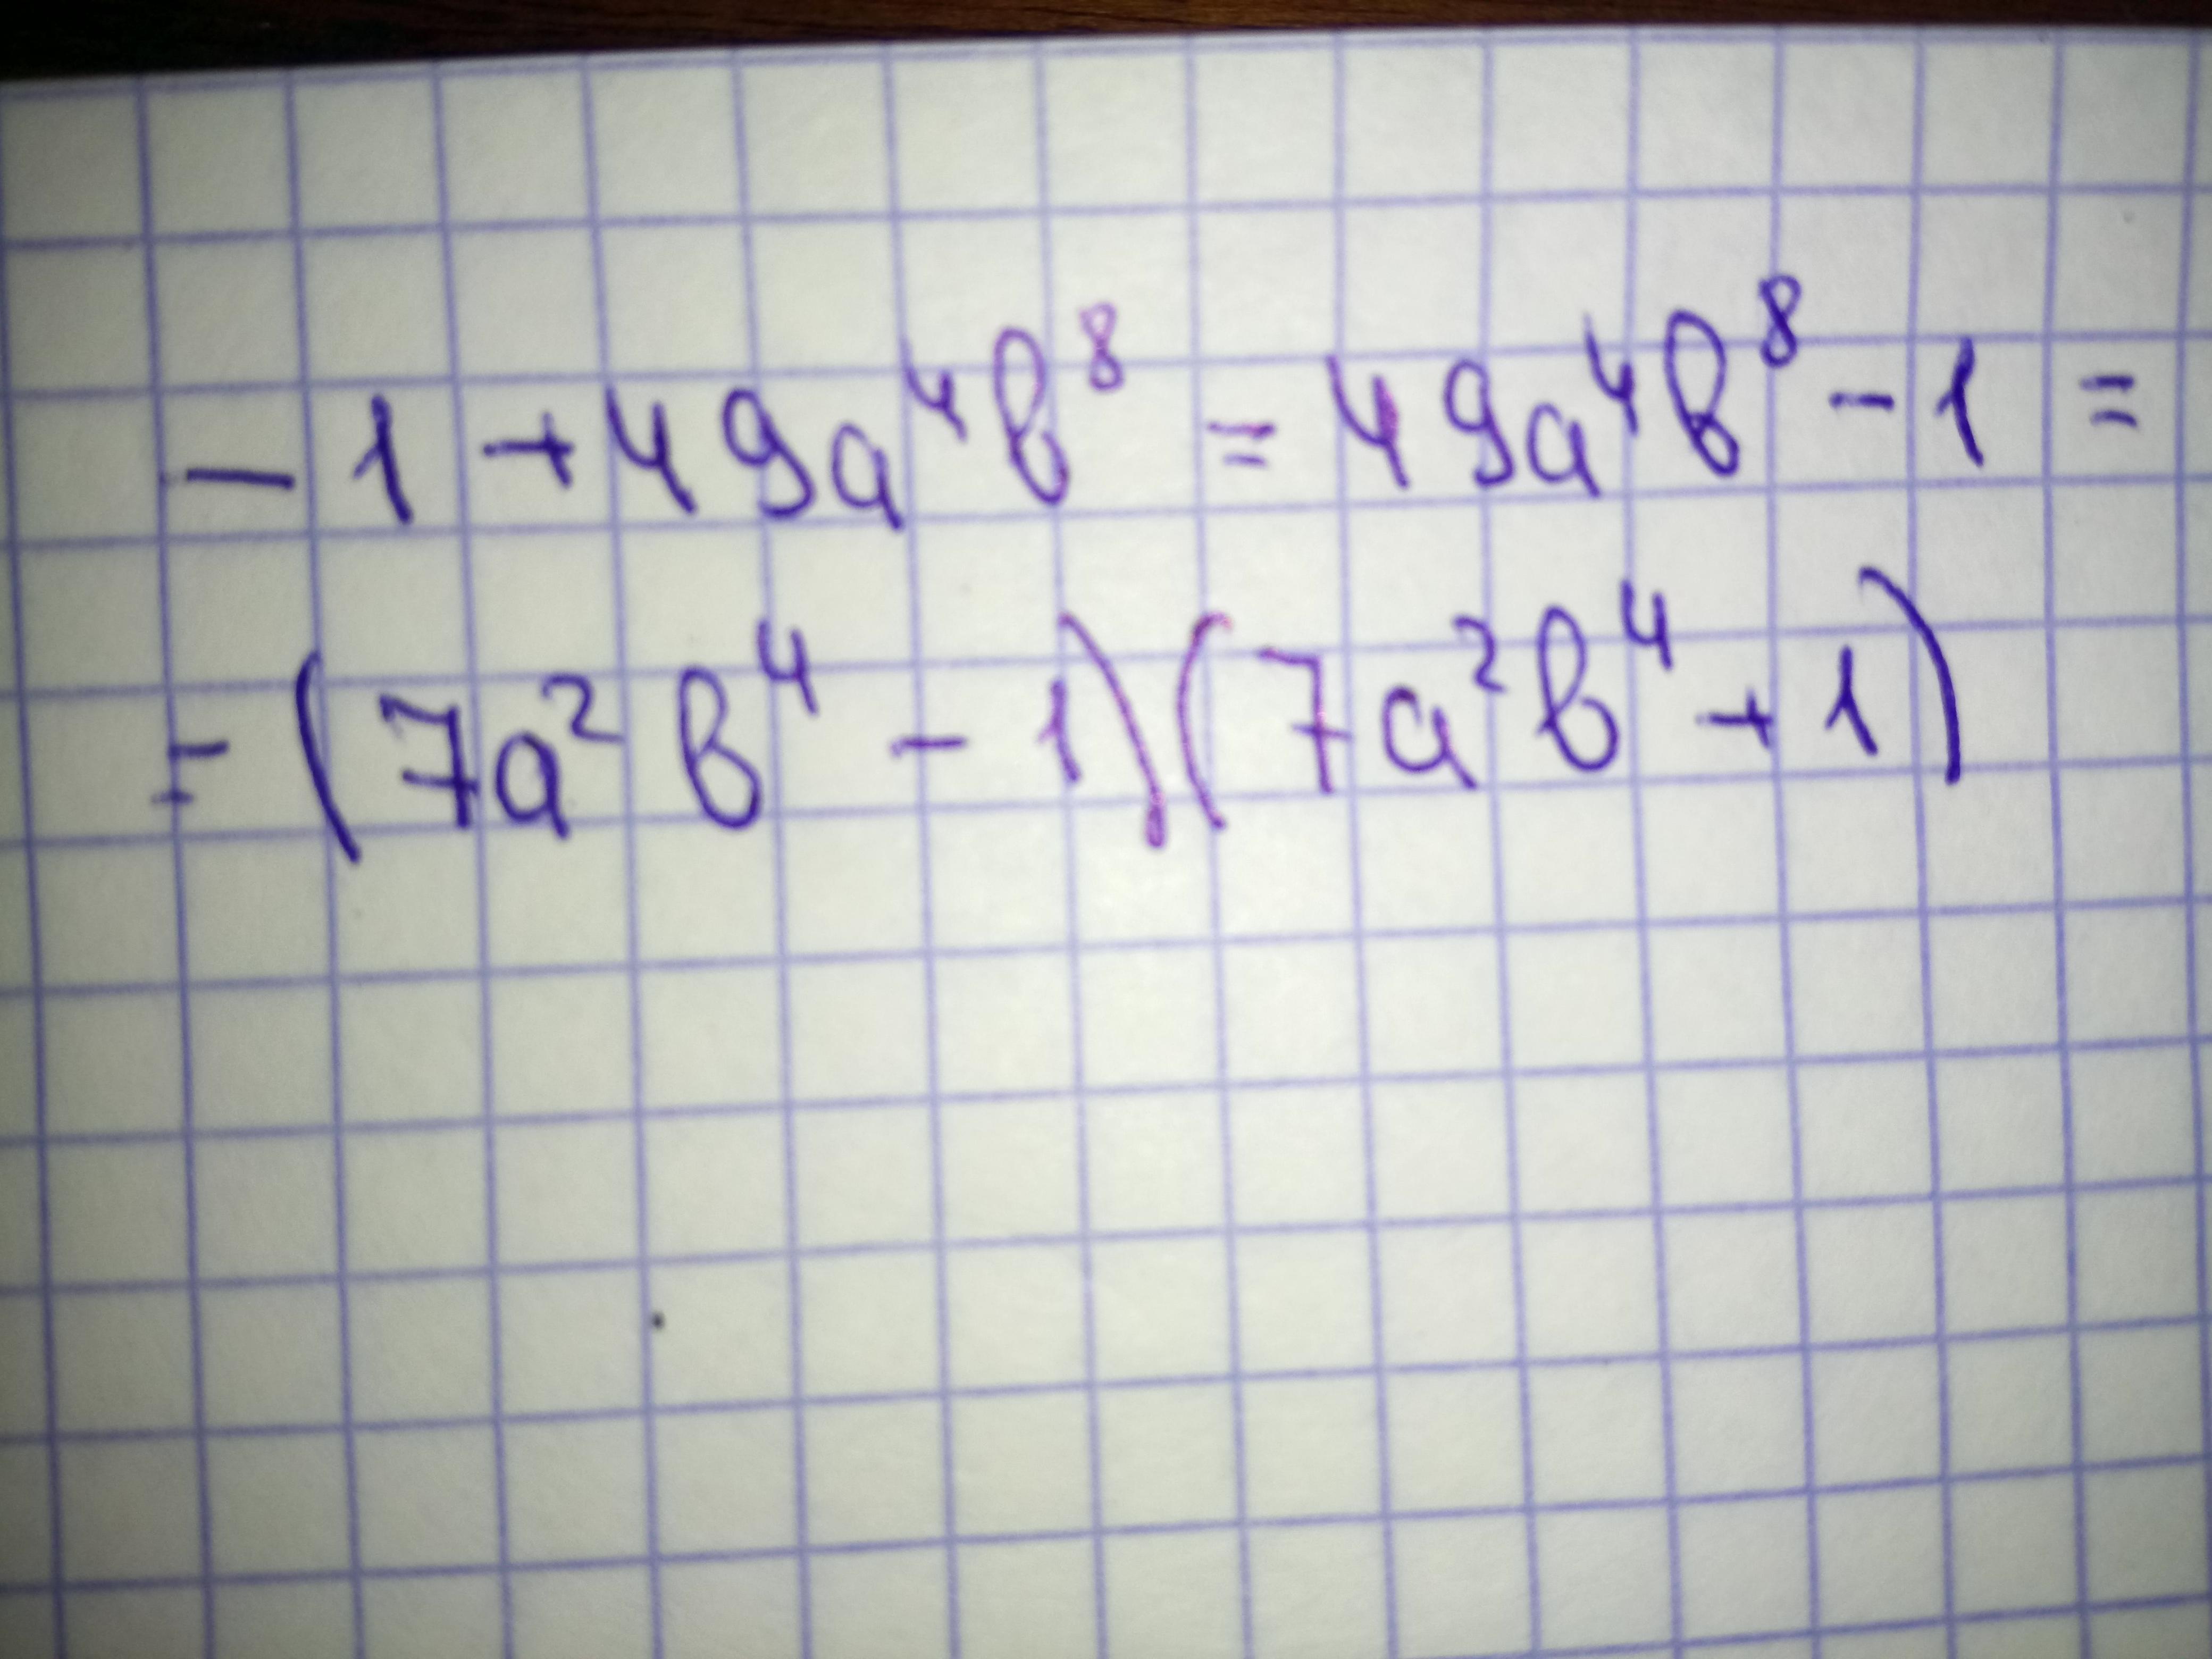 - 1 + 49a⁴b⁸ = 49a⁴b⁸ - 1 =
= (7a²b⁴ - 1)(7a²b⁴ + 1)